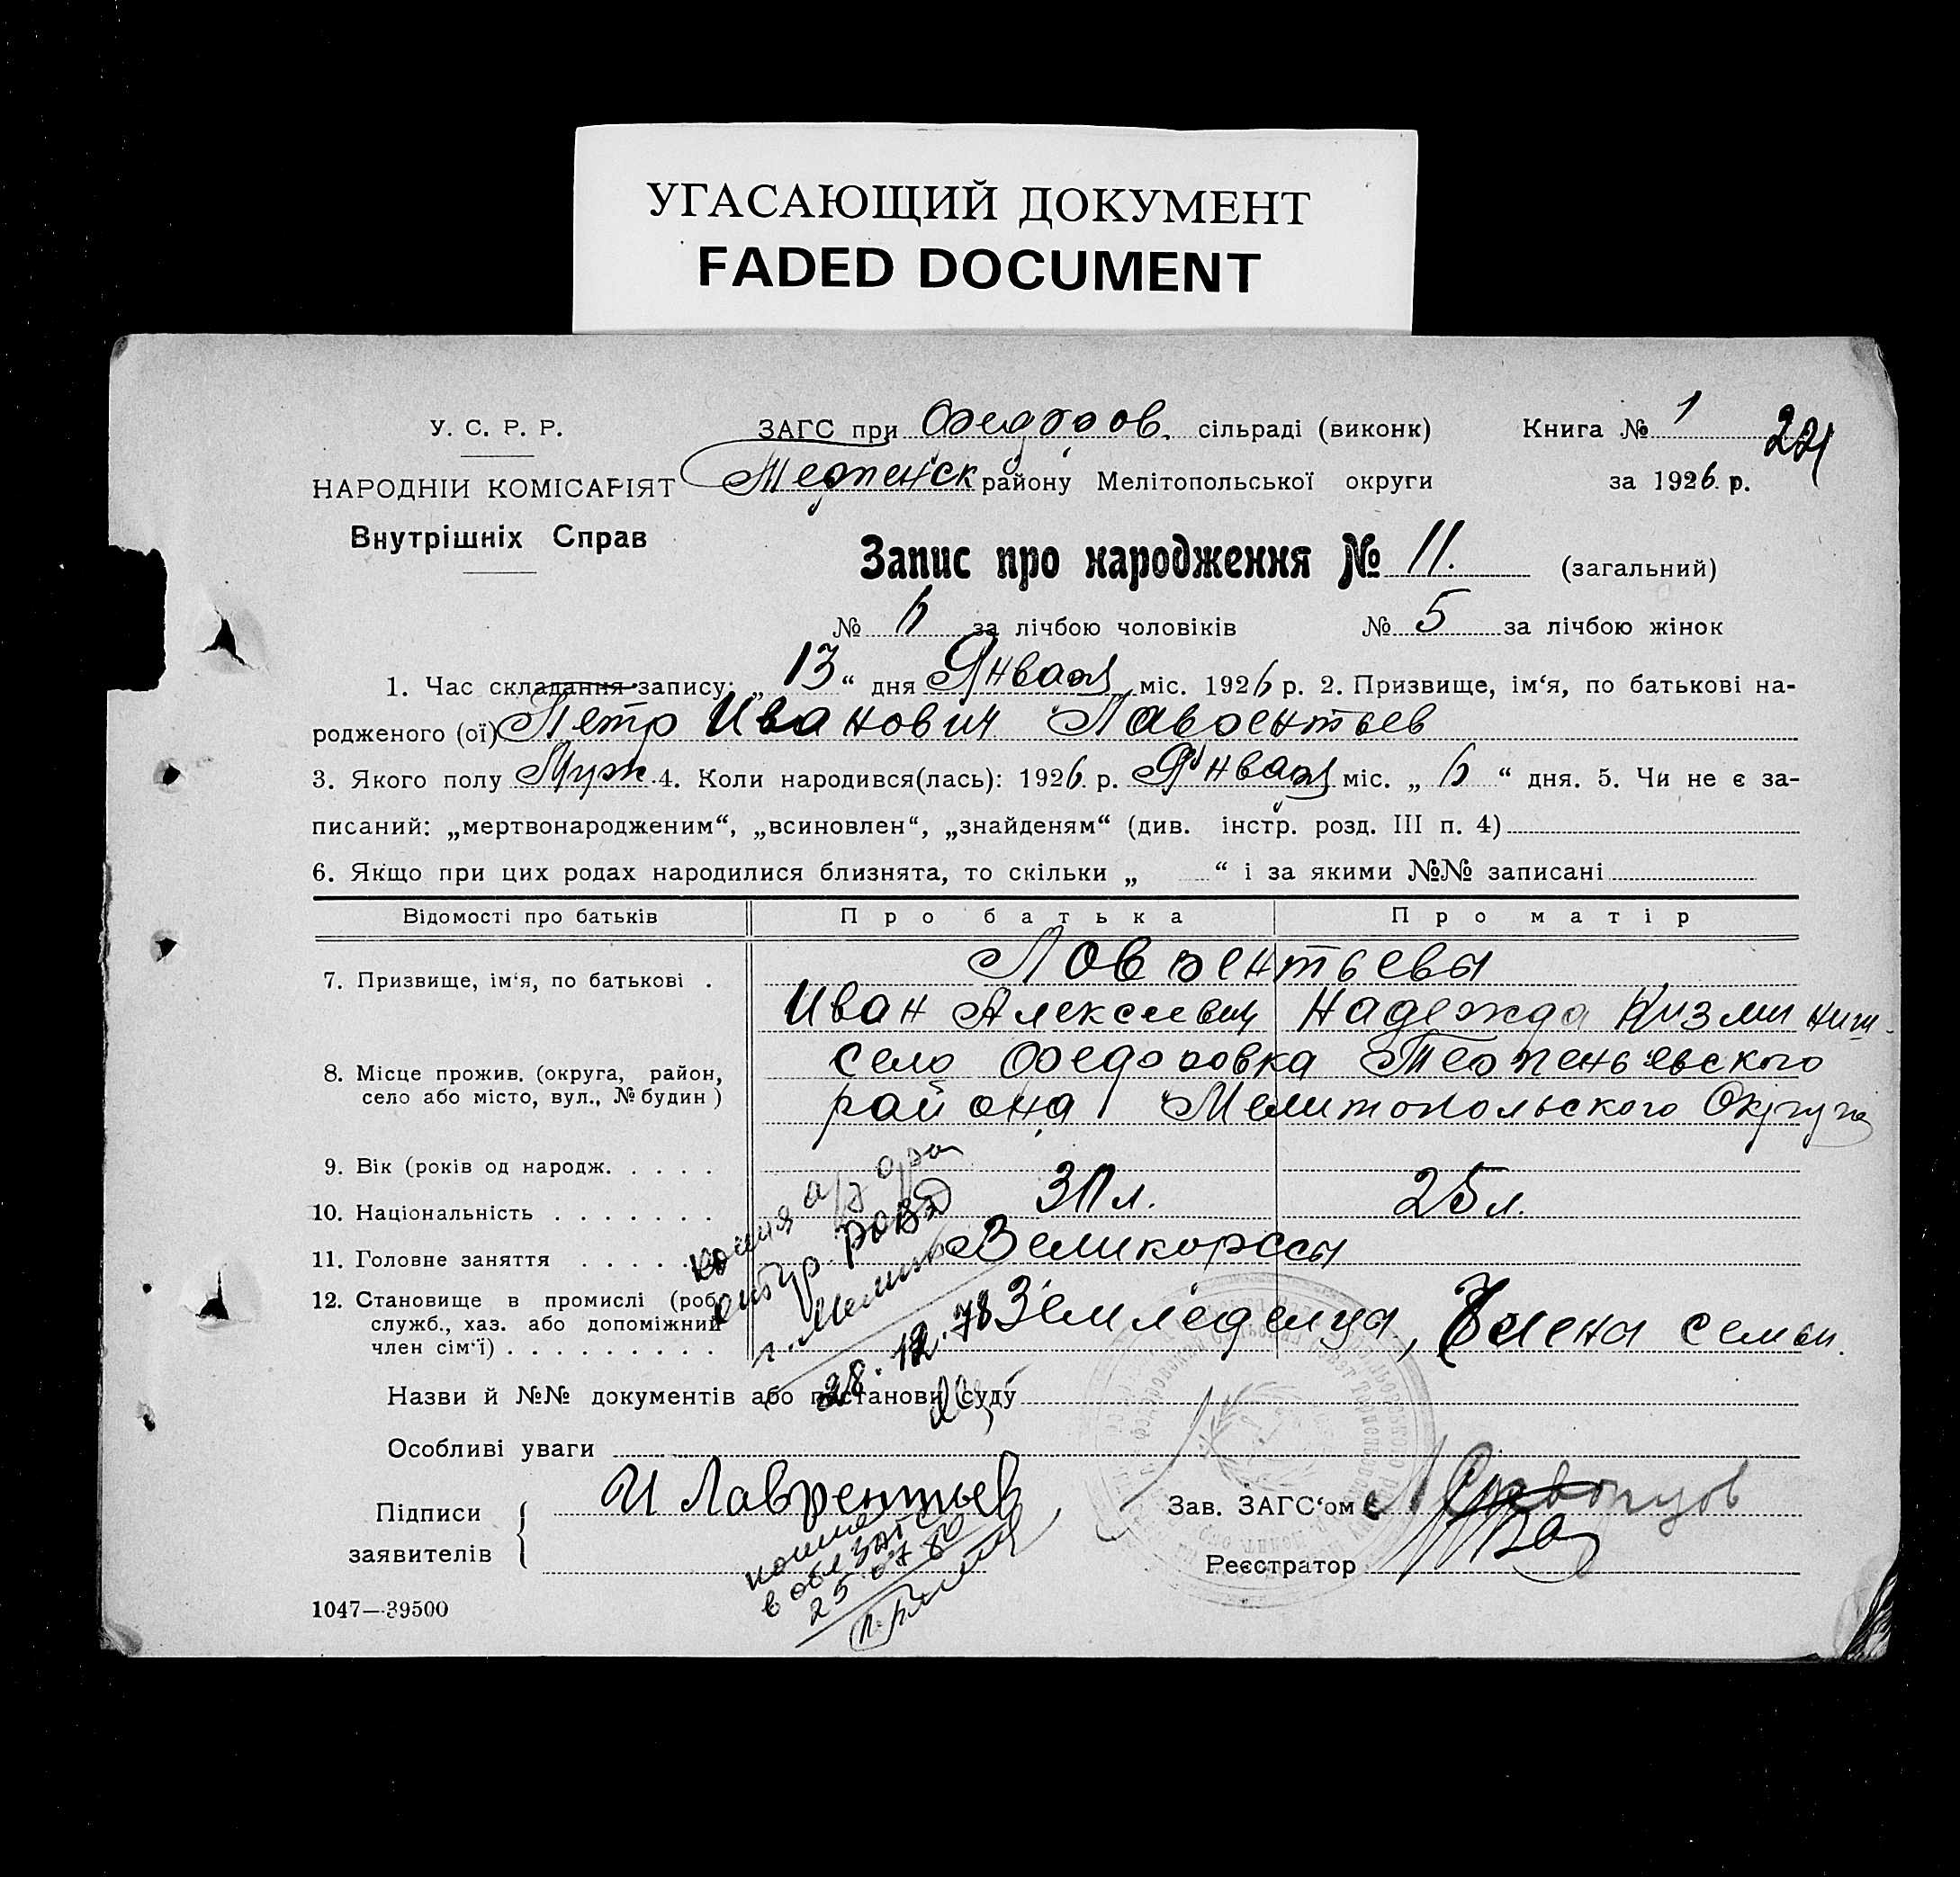 УГАСАЮЩИЙ ДОКУМЕНТ
FADED DOCUMENT
У. С. Р. Р.
НАРОДНІЙ КОМІСАРІЯТ
Внутрішніх Справ
ЗАГС при Федоров. сільраді (виконк)
Терпенск району Мелітопольської округи
Книга № 1
за 1926 р.
Запис про народження № 11. (загальний)
№ 6 за лічбою чоловіків № 5 за лічбою жінок
1. Час складання запису: „13“ дня Января міс. 1926 р. 2. Призвище, ім‘я, по батькові на-
родженого (ої) Петр Иванович Лаврентьев
3. Якого полу Муж. 4. Коли народився(лась): 1926 р. Января міс. „6“ дня. 5. Чи не є за-
писаний: „мертвонародженим“, „всиновлен“, „знайденям“ (див. інстр. розд. III п. 4)
6. Якщо при цих родах народилися близнята, то скільки „ “ і за якими №№ записані
Відомості про батьків Про батька Про матір
7. Призвище, ім‘я, по батькові . Лаврентьевы
Иван Алексеевич Надежда Кузминиш-
8. Місце прожив. (округа, район, село Федоровка Терпеньевского
село або місто, вул., № будин) района Мелитопольского Округа
9. Вік (років од народж. . . . .
10. Національність . . . . . . . 31 л. 25 л.
11. Головне заняття . . . . . . Великороссы
12. Становище в промислі (роб.
служб., хаз. або допоміжний Земледелца, Члена семьи.
член сім‘ї) . . . . . . . . .
копия
РОВД
28.12.78
Назви й №№ документів або постанови суду
Особливі уваги
Підписи
заявителів
И Лаврентьев
копия
в обл ЗАГС
25 07 80
Зав. ЗАГС‘ом
Реєстратор
1047—39500